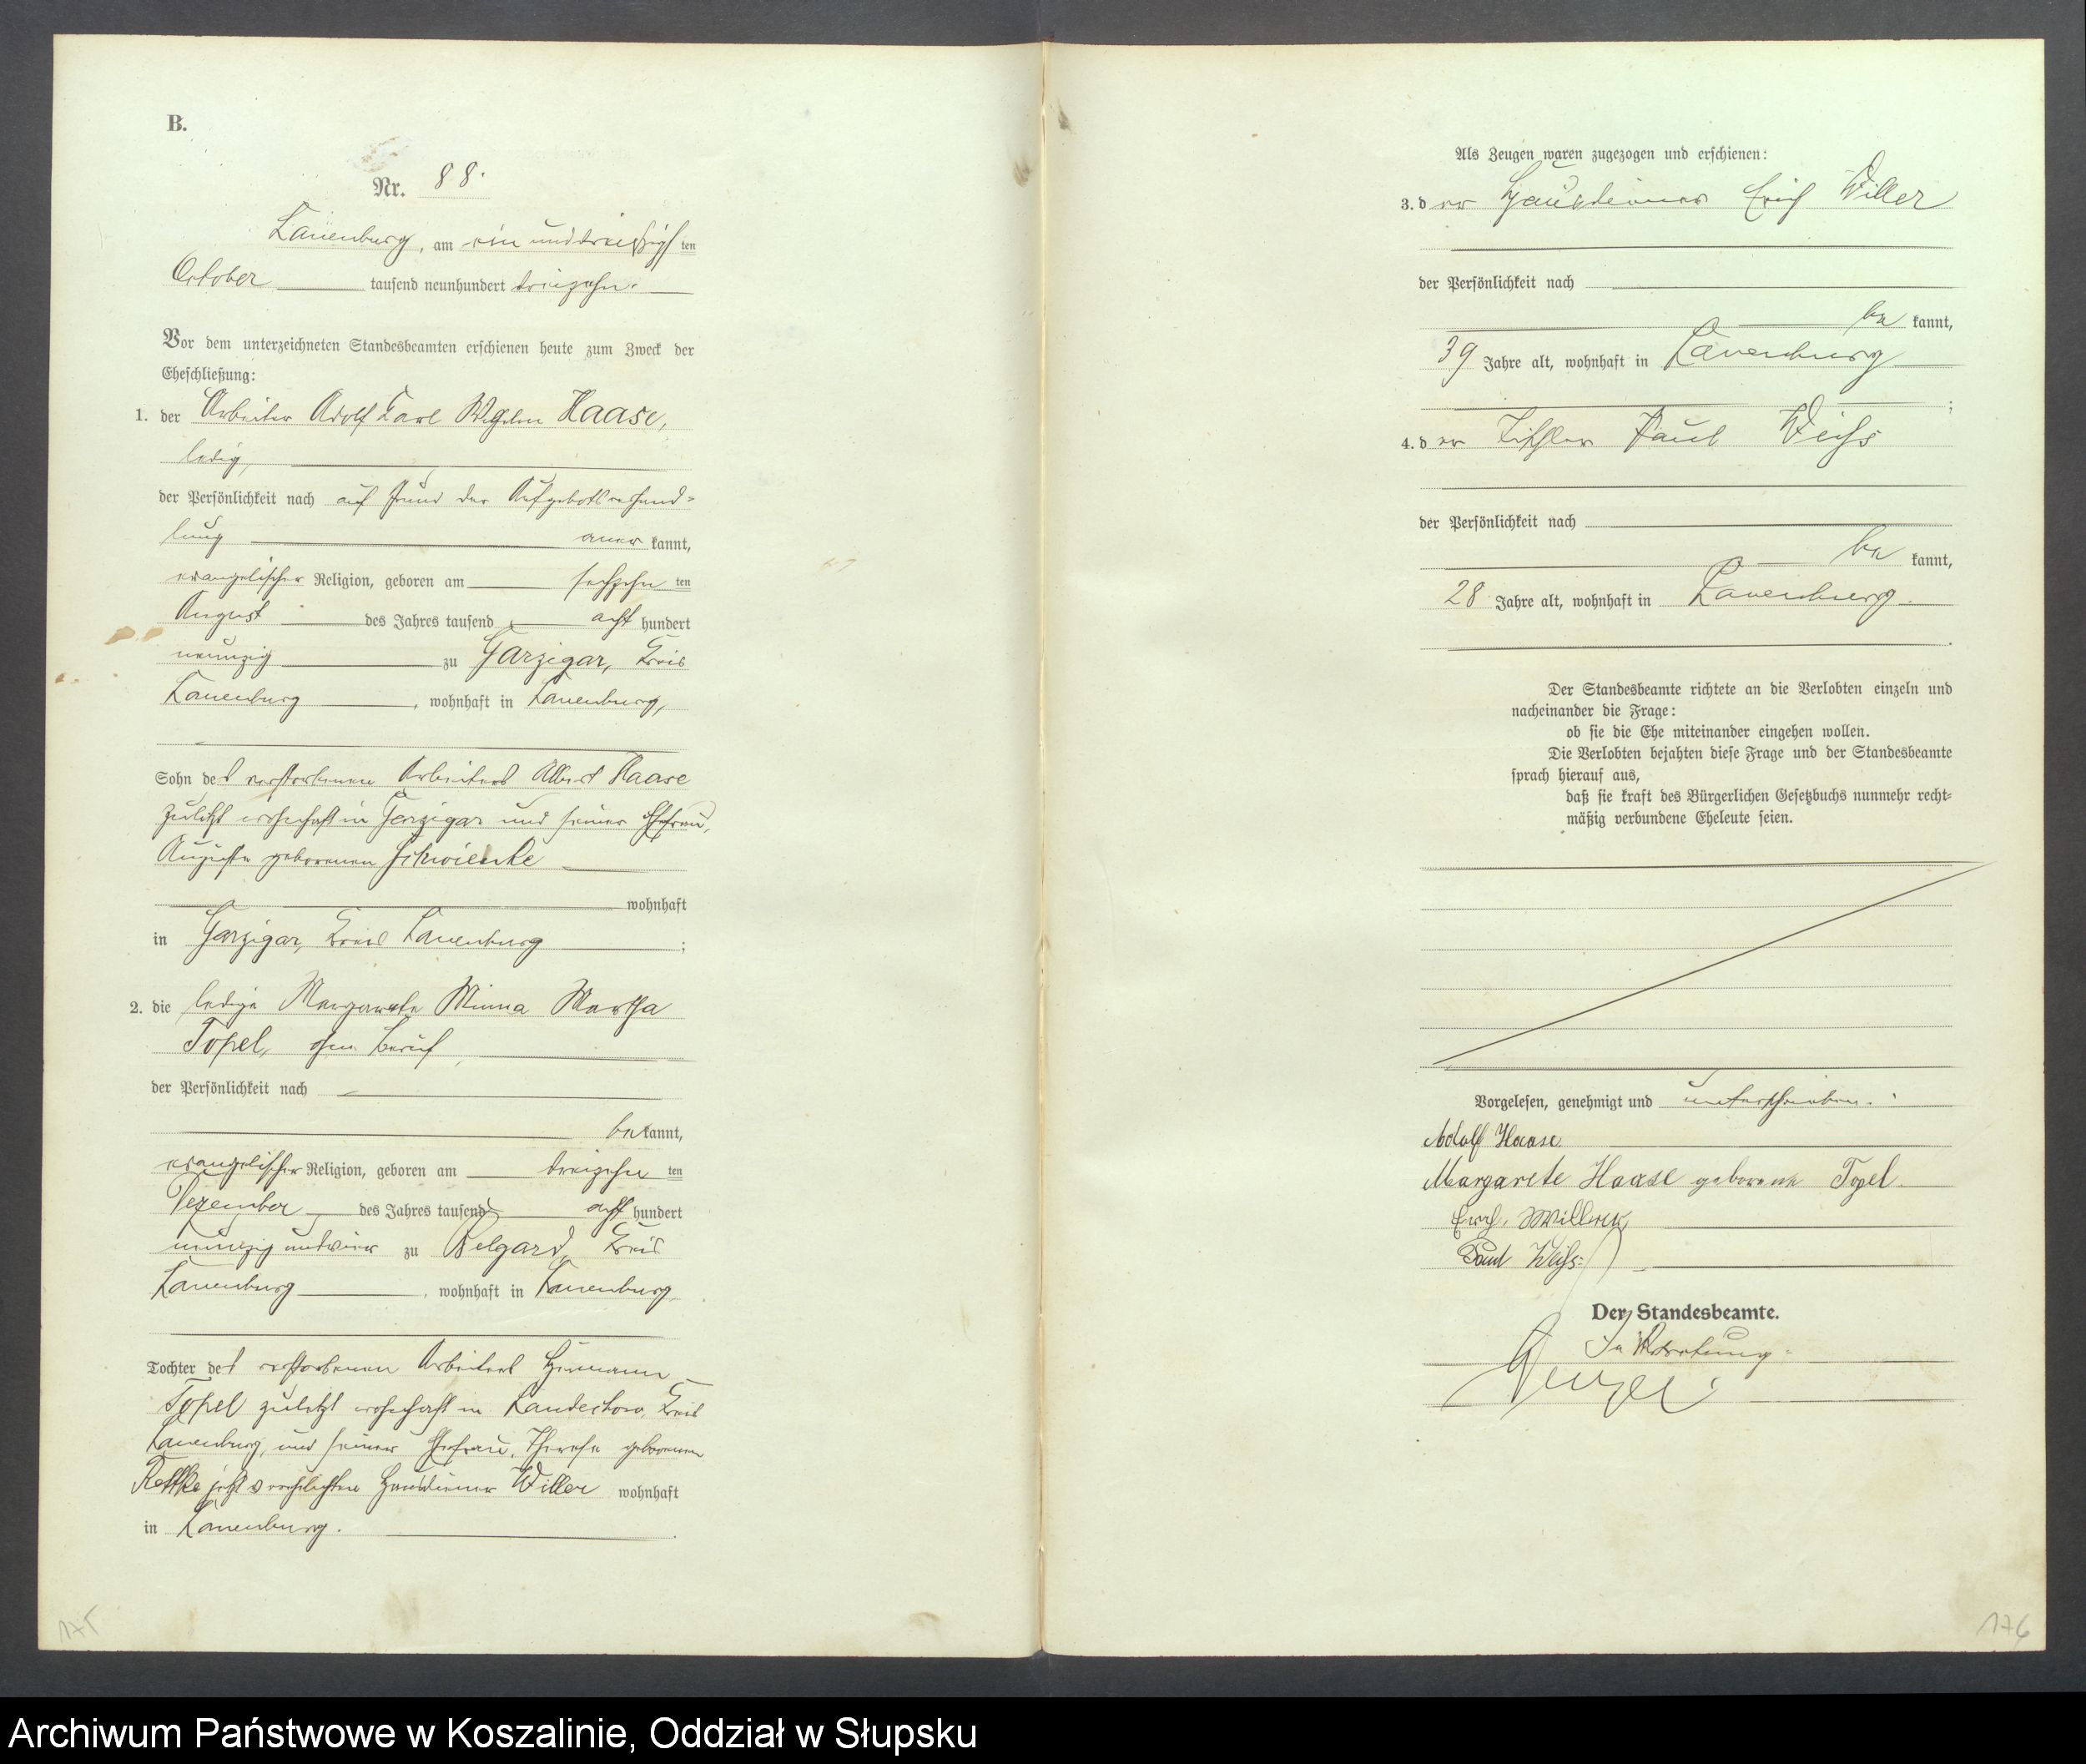 B.
Nr. 88.
Lauenburg, am ein und dreißigsten
October tausend neunhundert dreizehn.
Vor dem unterzeichneten Standesbeamten erschienen heute zum Zweck der
Eheschließung:
1. der Arbeiter Adolf Karl Wilhelm Haase,
ledig,
der Persönlichkeit nach auf Grund der Aufgebotsverhand=
lung aner kannt,
evangelischer Religion, geboren am sechzehn ten
August des Jahres tausend acht hundert
neunzig zu Garzigar, Kreis
Lauenburg, wohnhaft in Lauenburg,
Sohn des verstorbenen Arbeiters Albert Haase
zuletzt wohnhaft in Garzigar und seiner Ehefrau,
Auguste geborenen Schwienke
wohnhaft
in Garzigar, Kreis Lauenburg;
2. die ledige Margarete Minna Martha
Topel, ohne Beruf,
der Persönlichkeit nach
be kannt,
evangelischer Religion, geboren am dreizehn ten
Dezember des Jahres tausend acht hundert
neunzig und vier zu Belgard, Kreis
Lauenburg, wohnhaft in Lauenburg
Tochter des verstorbenen Arbeiters Hermann
Topel zuletzt wohnhaft in Landechow, Kreis
Lauenburg, und seiner Ehefrau, Therese geborenen
jetzt verehelichten Hausdiener Willer wohnhaft
in Lauenburg.
175
Als Zeugen waren zugezogen und erschienen:
3. der Hausdiener Erich Willer
der Persönlichkeit nach
be kannt,
39 Jahre alt, wohnhaft in Lauenburg
;
4. der Tischler Paul Weiß
der Persönlichkeit nach
be kannt,
28 Jahre alt, wohnhaft in Lauenburg.
Der Standesbeamte richtete an die Verlobten einzeln und
nacheinander die Frage:
ob sie die Ehe miteinander eingehen wollen.
Die Verlobten bejahten diese Frage und der Standesbeamte
sprach hierauf aus,
daß sie kraft des Bürgerlichen Gesetzbuchs nunmehr recht=
mäßig verbundene Eheleute seien.
Vorgelesen, genehmigt und unterschrieben.
Adolf Haase
Margarete Haase geborene Topel.
Erich Willer
Paul Weiß
Der Standesbeamte.
In Vertretung.
176
Archiwum Państwowe w Koszalinie, Oddział w Słupsku